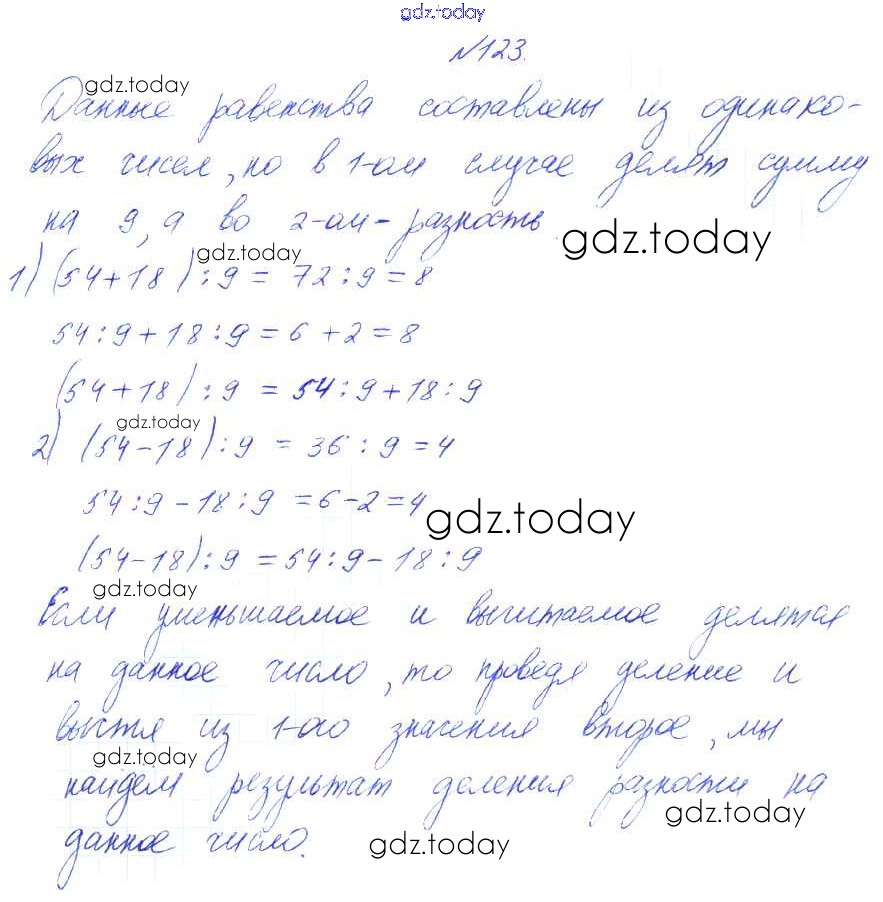 gdz.today
№123.
gdz.today
Данные равенства составлены из одинако-
вых чисел, но в 1-ом случае делят сумму
на 9, а во 2-ом - разность
gdz.today
gdz.today
1) (54+18):9 = 72:9=8
54:9+18:9=6+2=8
(54+18):9 = 54:9+18:9
gdz.today
2) (54-18):9 = 36:9=4
54:9-18:9=6-2=4
gdz.today
(54-18):9=54:9-18:9
gdz.today
Если уменьшаемое и вычитаемое делятся
на данное число, то проведя деление и
вычтя из 1-ого значения второе, мы
gdz.today
найдем результат деления разности на
gdz.today
данное число.
gdz.today